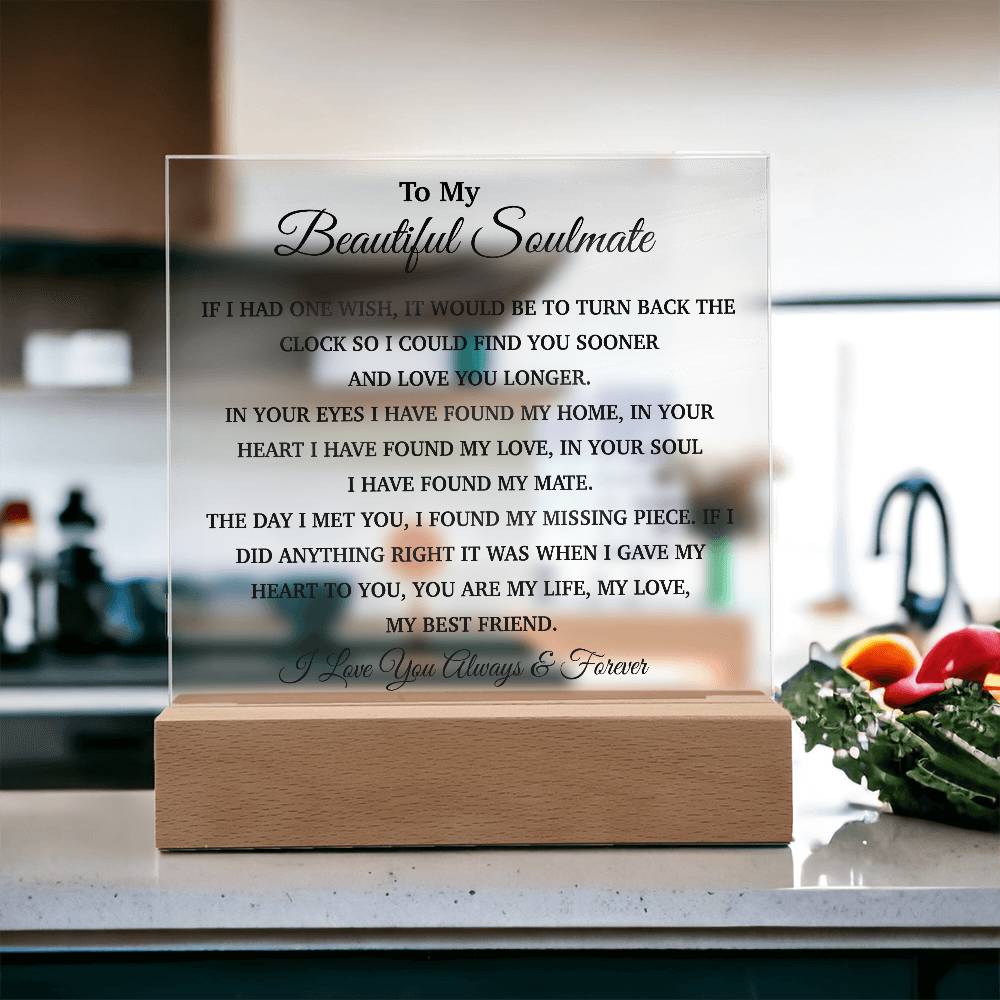 To My
Beautiful Soulmate
IF I HAD ONE WISH, IT WOULD BE TO TURN BACK THE
CLOCK SO I COULD FIND YOU SOONER
AND LOVE YOU LONGER.
IN YOUR EYES I HAVE FOUND MY HOME, IN YOUR
HEART I HAVE FOUND MY LOVE, IN YOUR SOUL
I HAVE FOUND MY MATE.
THE DAY I MET YOU, I FOUND MY MISSING PIECE. IF I
DID ANYTHING RIGHT IT WAS WHEN I GAVE MY
HEART TO YOU, YOU ARE MY LIFE, MY LOVE,
MY BEST FRIEND.
I Love You Always & Forever